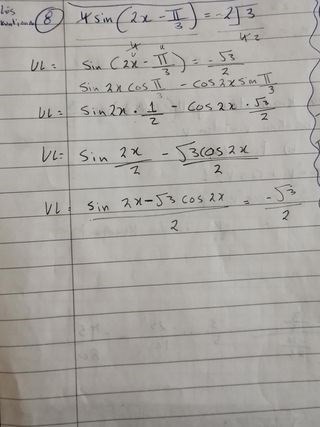 Lös
8 4 sin (2x - π/3) = -2√3
4 4 2
VL = sin (2x - π/3) = -√3/2
sin 2x cos π/3 - cos 2x sin π/3
VL = sin 2x · 1/2 - cos 2x · √3/2
VL = sin 2x/2 - √3 cos 2x/2
VL = sin 2x - √3 cos 2x/2 = -√3/2